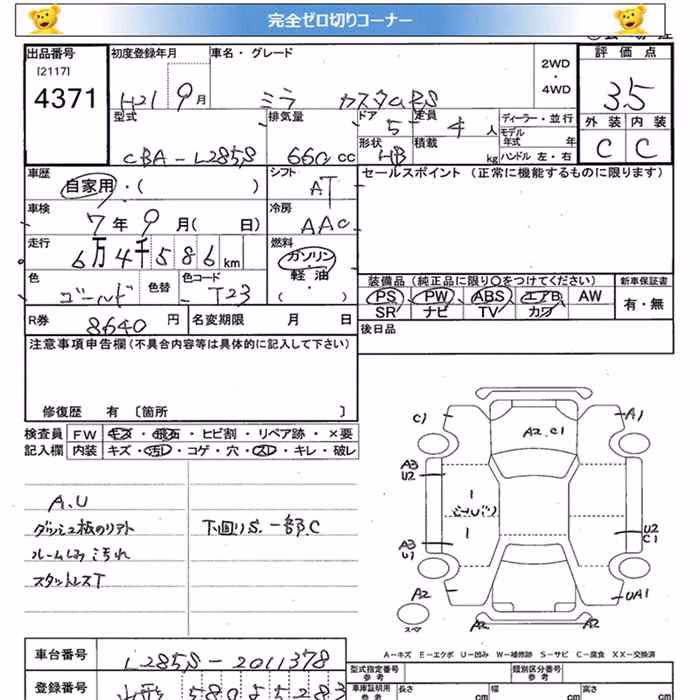 完全ゼロ切りコーナー
出品番号
[2117]
4371
初度登録年月
H21 9月
車名・グレード
ミラ カスタムRS
2WD
・
4WD
評価点
3.5
外装 内装
C C
型式
CBA-L285S
排気量
660 cc
ドア
5
形状
HB
定員
4 人
積載
kg
ディーラー・並行
モデル年式 年
ハンドル 左・右
車歴
自家用・( )
シフト
AT
セールスポイント (正常に機能するものに限ります)
車検
7年9月( 日)
冷房
AAC
走行
6万4千586km
燃料
ガソリン
軽油
( ・ )
色
ゴールド
色替
色コード
T23
装備品(純正品に限り○をつけてください)
PS PW ABS エアB AW
SR ナビ TV カワ
新車保証書
有・無
R券
8640 円
名変期限 月 日
後日品
注意事項申告欄(不具合内容等は具体的に記入して下さい)
修復歴 有 〔箇所 〕
検査員
記入欄
FW キズ・飛石・ヒビ割・リペア跡・×要
内装 キズ・汚レ・コゲ・穴・スレ・キレ・破レ
A.U
ルームしみ 汚れ
スタットレスT
下回りS.一部C
C1
A1
A2.C1
A3
U2
U2
C1
A3
U1
A2
UA1
A2
A2
スペア
A-キズ E-エクボ U-凹み W-補修跡 S-サビ C-腐食 XX-交換済
車台番号
L285S-2011378
登録番号
山形 580
型式指定番号
参考
類別区分番号
参考
車庫証明用
参考
長さ cm
幅 cm
高さ cm